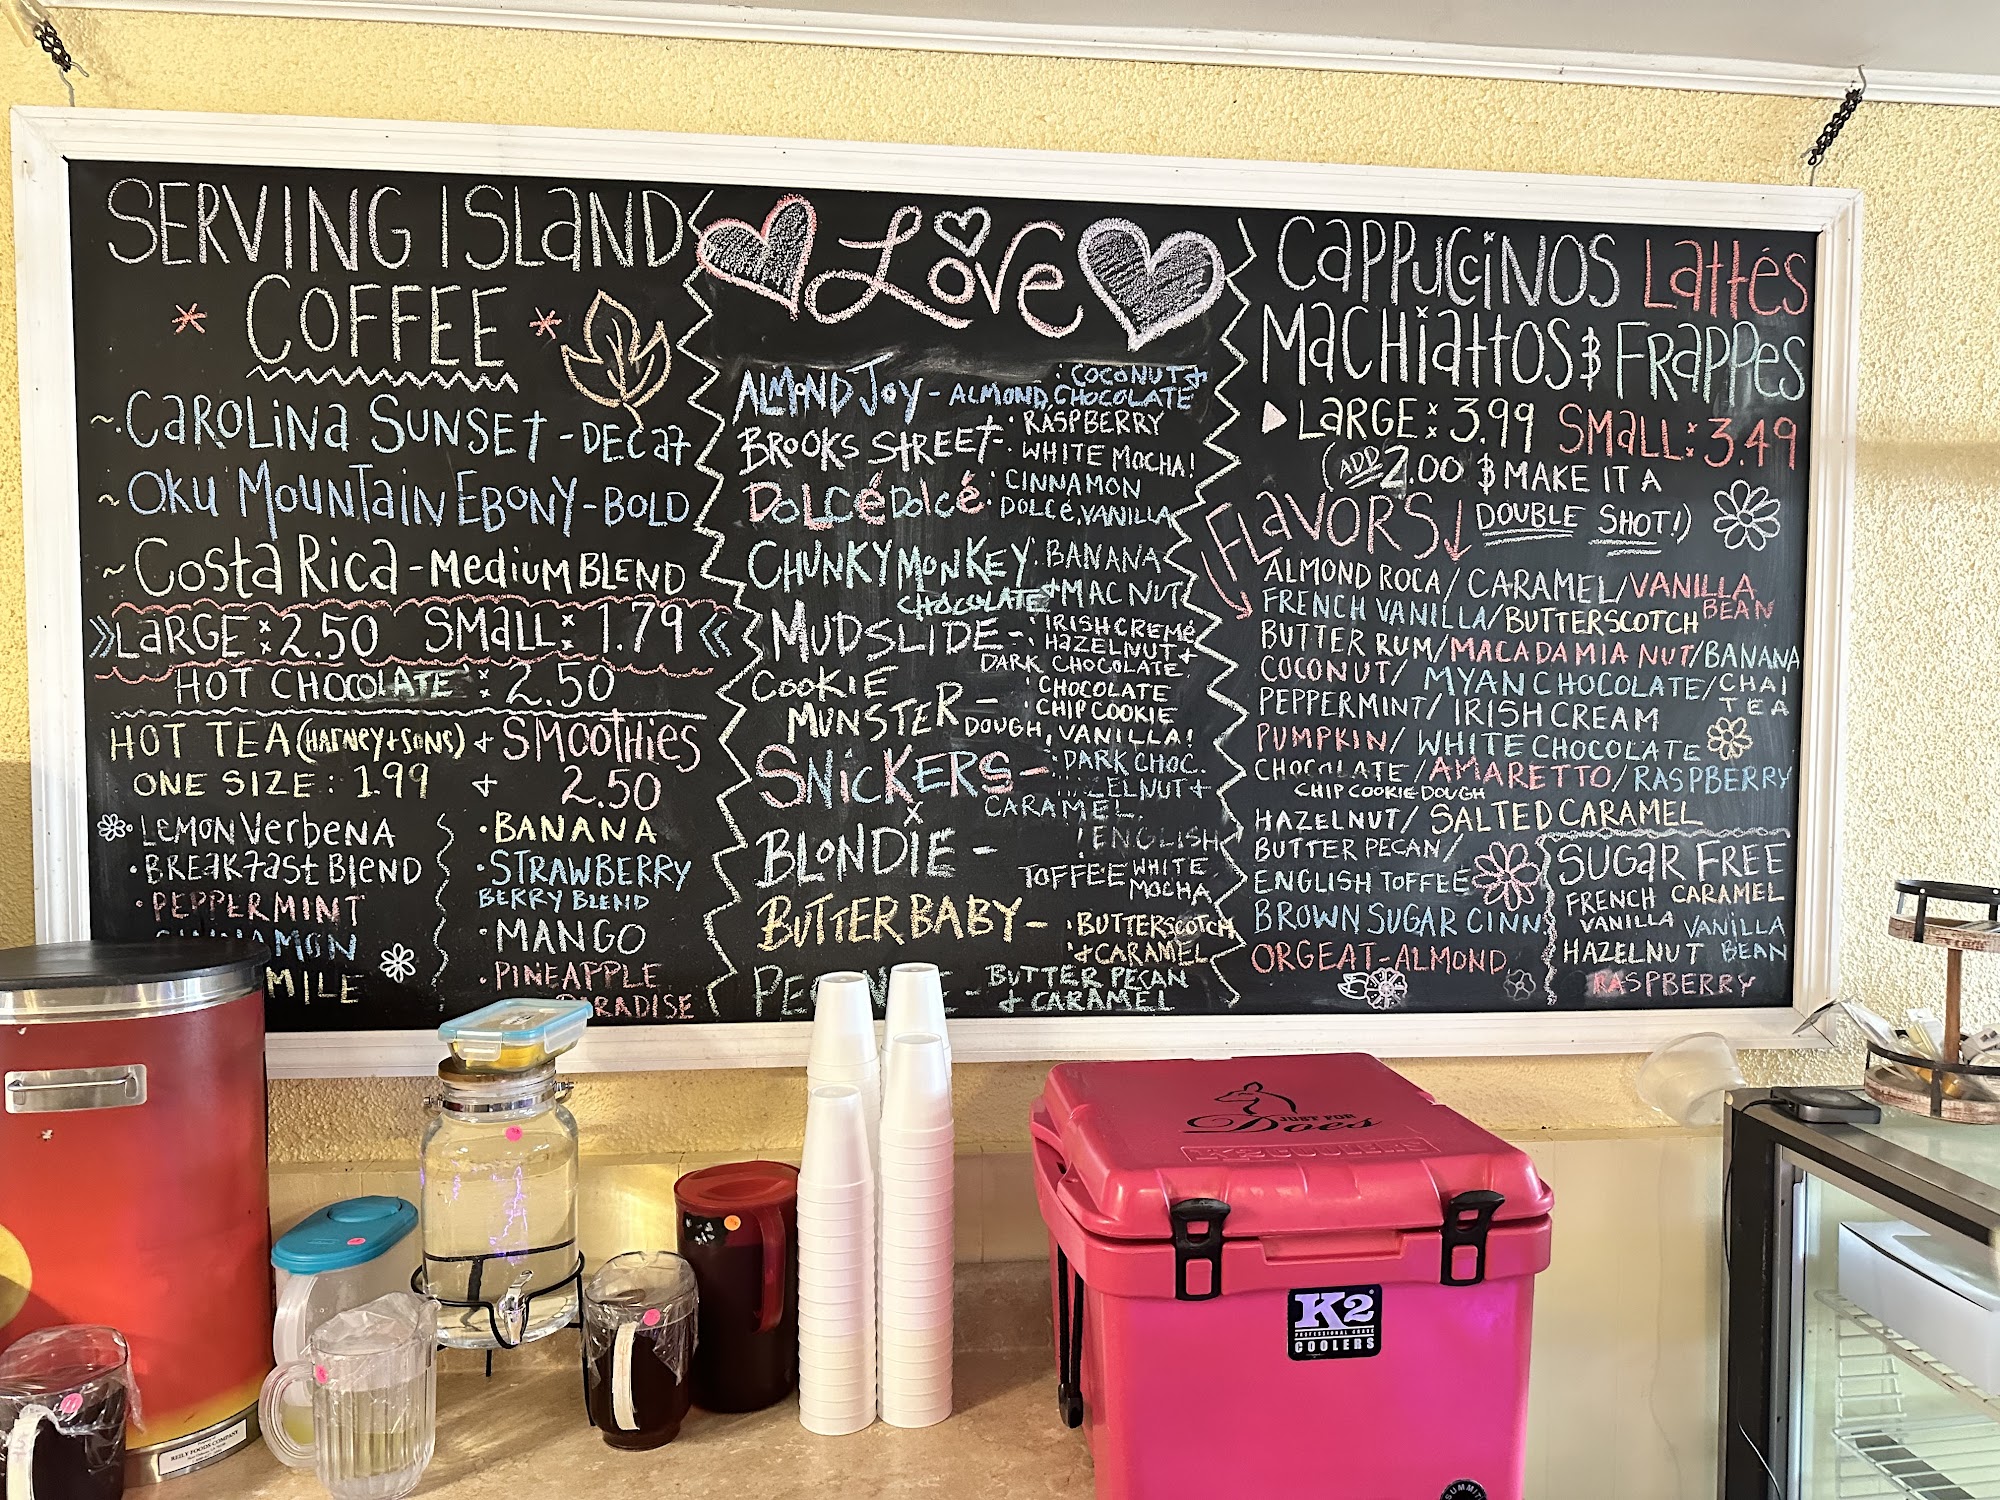 SERVING ISLAND
COFFEE
~ CAROLINA SUNSET - DECAF
~ OKU MOUNTAIN EBONY - BOLD
~ COSTA RICA - MEDIUM BLEND
LARGE : 2.50 SMALL : 1.79
HOT CHOCOLATE : 2.50
HOT TEA (HARNEY + SONS) + SMOOTHIES
ONE SIZE : 1.99 + 2.50
LEMON VERBENA
• BREAKFAST BLEND
• PEPPERMINT
CINNAMON
MILE
• BANANA
• STRAWBERRY
BERRY BLEND
• MANGO
• PINEAPPLE
RADISE
Love
ALMOND JOY - ALMOND, CHOCOLATE
: COCONUT +
BROOKS STREET - : RASPBERRY
WHITE MOCHA!
DOLCé DOLCé : CINNAMON
DOLCé, VANILLA
CHUNKY MONKEY : BANANA
CHOCOLATE + MAC NUT
MUDSLIDE - : IRISH CREME
HAZELNUT +
DARK CHOCOLATE
COOKIE
MUNSTER - : CHOCOLATE
CHIP COOKIE
DOUGH, VANILLA!
SNICKERS - : DARK CHOC.
ELNUT +
CARAMEL.
BLONDIE - : ENGLISH
TOFFEE WHITE
MOCHA
BUTTERBABY - : BUTTERSCOTCH
+ CARAMEL
BUTTER PECAN
+ CARAMEL
CAPPUCCINOS LATTéS
MACHIATTOS & FRAPPES
LARGE : 3.99 SMALL : 3.49
(ADD 2.00 $ MAKE IT A
DOUBLE SHOT!)
FLAVORS
ALMOND ROCA / CARAMEL / VANILLA
BEAN
FRENCH VANILLA / BUTTERSCOTCH
BUTTER RUM / MACADAMIA NUT / BANANA
COCONUT / MYAN CHOCOLATE / CHAI
TEA
PEPPERMINT / IRISH CREAM
PUMPKIN / WHITE CHOCOLATE
CHOCOLATE / AMARETTO / RASPBERRY
CHIP COOKIE DOUGH
HAZELNUT / SALTED CARAMEL
BUTTER PECAN /
ENGLISH TOFFEE
BROWN SUGAR CINN.
ORGEAT - ALMOND
SUGAR FREE
FRENCH CARAMEL
VANILLA VANILLA
HAZELNUT BEAN
RASPBERRY
JUST FOR
Does
K2 COOLERS
K2
PROFESSIONAL GRADE
COOLERS
REILY FOODS COMPANY
SUMMIT